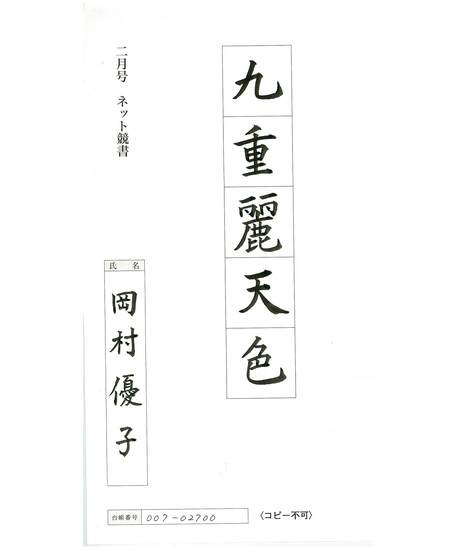 九重麗天色
二月号 ネット競書
氏名
岡村優子
台帳番号 007-02700
〈コピー不可〉